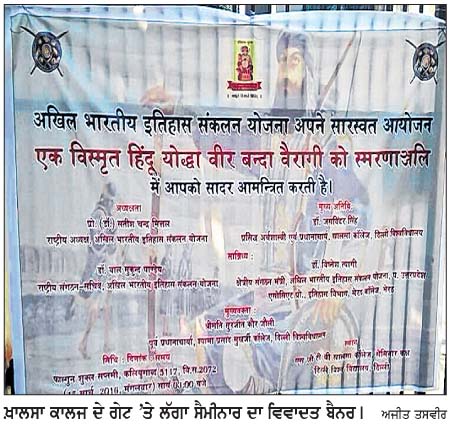 अखिल भारतीय इतिहास संकलन योजना अपने सारस्वत आयोजन
एक विस्मृत हिंदू योद्धा वीर बन्दा वैरागी को स्मरणाञ्जलि
में आपको सादर आमन्त्रित करती है।
अध्यक्षता
मुख्य अतिथि
प्रो. (डॉ) सतीश चन्द्र मित्तल
डॉ. जसविंदर सिंह
राष्ट्रीय अध्यक्ष, अखिल भारतीय इतिहास संकलन योजना
प्रसिद्ध अर्थशास्त्री एवं प्रधानाचार्य, खालसा कॉलेज, दिल्ली विश्वविद्यालय
सान्निध्य
डॉ. बाल मुकुन्द पाण्डेय
डॉ. विघ्नेश त्यागी
राष्ट्रीय संगठन-सचिव, अखिल भारतीय इतिहास संकलन योजना
क्षेत्रीय संगठन मंत्री, अखिल भारतीय इतिहास संकलन योजना, प. उत्तरप्रदेश
एसोसिएट प्रो., इतिहास विभाग, मेरठ कॉलेज, मेरठ
मुख्यवक्ता
श्रीमति गुरजीत कौर जौली
पूर्व प्रधानाचार्या, श्यामा प्रसाद मुखर्जी कॉलेज, दिल्ली विश्वविद्यालय
तिथि दिनांक समय
स्थान
फाल्गुन शुक्ल सप्तमी, कलियुगाब्द 5117, वि.स.2072
एस.जी.टी.बी खालसा कॉलेज, सेमिनार कक्ष
मार्च 2016, मंगलवार) सायं 03:00 बजे
दिल्ली विश्व विद्यालय, दिल्ली
ਖ਼ਾਲਸਾ ਕਾਲਜ ਦੇ ਗੇਟ 'ਤੇ ਲੱਗਾ ਸੈਮੀਨਾਰ ਦਾ ਵਿਵਾਦਤ ਬੈਨਰ। ਅਜੀਤ ਤਸਵੀਰ